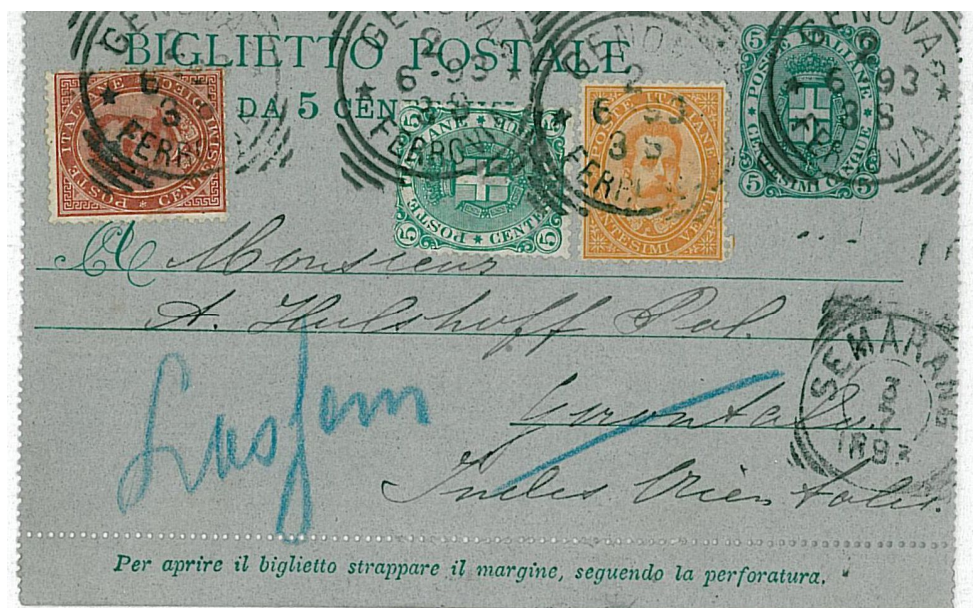 BIGLIETTO POSTALE
DA 5 CENTESIMI
GENOVA
2
6-93
3 S
FERROVIA
GENOVA
2
6-93
3 S
FERROVIA
GENOVA
2
6 93
3 S
FERROVIA
GENOVA
2
6 93
3 S
FERROVIA
POSTE ITALIANE
CENTESIMI DIECI
POSTE ITALIANE
CENTESIMI
5 5 5
POSTE ITALIANE
CENTESIMI VENTI
5 5
POSTE ITALIANE
CENTESIMI CINQUE
5 5
A Monsieur
A. Hulshoff Pol.
Gorontalo
Indes Orientales.
Lasem
SEMARANG
1893
Per aprire il biglietto strappare il margine, seguendo la perforatura.